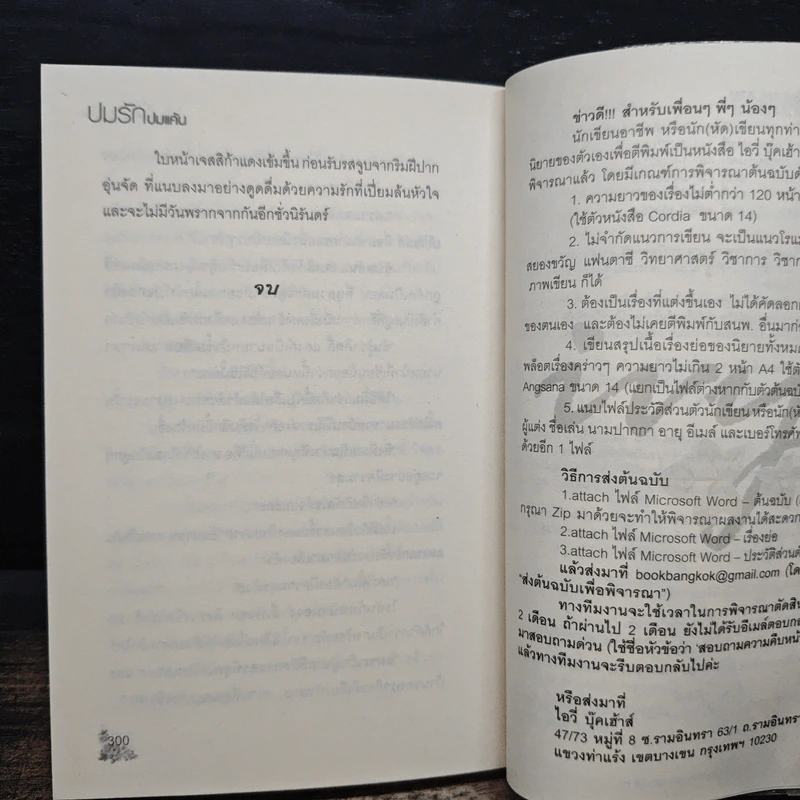 ปมรักปมแค้น
ใบหน้าเจสสิก้าแดงเข้มขึ้น ก่อนรับรสจูบจากริมฝีปาก
อุ่นจัด ที่แนบลงมาอย่างดูดดื่มด้วยความรักที่เปี่ยมล้นหัวใจ
และจะไม่มีวันพรากจากกันอีกชั่วนิรันดร์
จบ
300
ข่าวดี!!! สำหรับเพื่อนๆ พี่ๆ น้องๆ
นักเขียนอาชีพ หรือนัก(หัด)เขียนทุกท่า
นิยายของตัวเองเพื่อตีพิมพ์เป็นหนังสือ ไอวี่ บุ๊คเฮ้า
พิจารณาแล้ว โดยมีเกณฑ์การพิจารณาต้นฉบับ
1. ความยาวของเรื่องไม่ต่ำกว่า 120 หน้า
(ใช้ตัวหนังสือ Cordia ขนาด 14)
2. ไม่จำกัดแนวการเขียน จะเป็นแนวโรแม
สยองขวัญ แฟนตาซี วิทยาศาสตร์ วิชาการ วิชาก
ภาพเขียน ก็ได้
3. ต้องเป็นเรื่องที่แต่งขึ้นเอง ไม่ได้คัดลอก
ของตนเอง และต้องไม่เคยตีพิมพ์กับสนพ. อื่นมาก่
4. เขียนสรุปเนื้อเรื่องย่อของนิยายทั้งหม
พล็อตเรื่องคร่าวๆ ความยาวไม่เกิน 2 หน้า A4 ใช้ตั
Angsana ขนาด 14 (แยกเป็นไฟล์ต่างหากกับตัวต้นฉบั
5. แนบไฟล์ประวัติส่วนตัวนักเขียน หรือนัก(หั
ผู้แต่ง ชื่อเล่น นามปากกา อายุ อีเมล์ และเบอร์โทรศัพ
ด้วยอีก 1 ไฟล์
วิธีการส่งต้นฉบับ
1.attach ไฟล์ Microsoft Word – ต้นฉบับ (
กรุณา Zip มาด้วยจะทำให้พิจารณาผลงานได้สะดวก
2.attach ไฟล์ Microsoft Word – เรื่องย่อ
3.attach ไฟล์ Microsoft Word – ประวัติส่วนตั
แล้วส่งมาที่ bookbangkok@gmail.com (โด
"ส่งต้นฉบับเพื่อพิจารณา")
ทางทีมงานจะใช้เวลาในการพิจารณาตัดสิน
2 เดือน ถ้าผ่านไป 2 เดือน ยังไม่ได้รับอีเมล์ตอบกล
มาสอบถามด่วน (ใช้ชื่อหัวข้อว่า 'สอบถามความคืบหน้
แล้วทางทีมงานจะรีบตอบกลับไปค่ะ
หรือส่งมาที่
ไอวี่ บุ๊คเฮ้าส์
47/73 หมู่ที่ 8 ซ.รามอินทรา 63/1 ถ.รามอินท
แขวงท่าแร้ง เขตบางเขน กรุงเทพฯ 10230